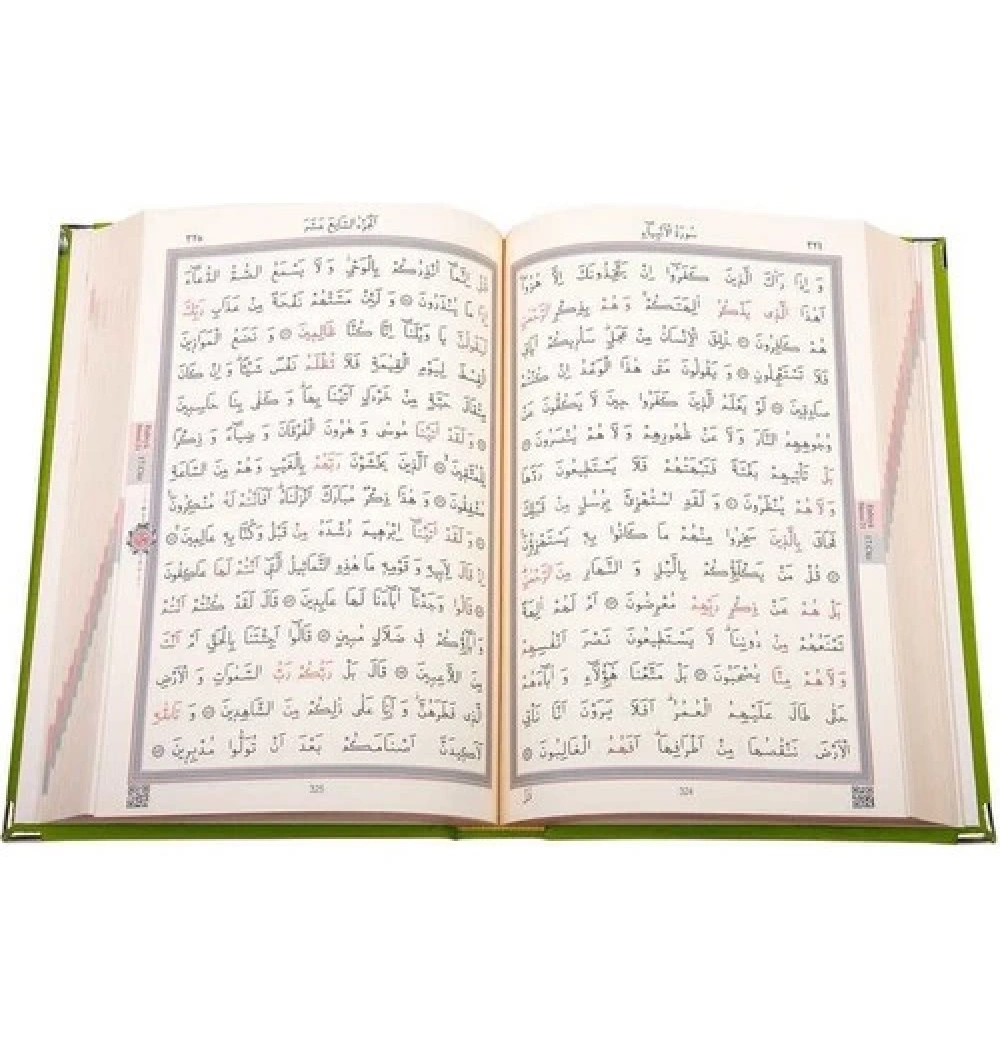 سورة الانبياء
وَ اِذَا رَاٰكَ الَّذٖينَ كَفَرُوا اِنْ يَتَّخِذُونَكَ اِلَّا هُزُوًا
اَهٰذَا الَّذٖى يَذْكُرُ اٰلِهَتَكُمْ وَ هُمْ بِذِكْرِ الرَّحْمٰنِ
هُمْ كَافِرُونَ خُلِقَ الْاِنْسَانُ مِنْ عَجَلٍ سَاُرٖيكُمْ اٰيَاتٖى
فَلَا تَسْتَعْجِلُونِ وَ يَقُولُونَ مَتٰى هٰذَا الْوَعْدُ اِنْ كُنْتُمْ
صَادِقٖينَ لَوْ يَعْلَمُ الَّذٖينَ كَفَرُوا حٖينَ لَا يَكُفُّونَ عَنْ
وُجُوهِهِمُ النَّارَ وَ لَا عَنْ ظُهُورِهِمْ وَ لَا هُمْ يُنْصَرُونَ
بَلْ تَاْتٖيهِمْ بَغْتَةً فَتَبْهَتُهُمْ فَلَا يَسْتَطٖيعُونَ رَدَّهَا
وَ لَا هُمْ يُنْظَرُونَ وَ لَقَدِ اسْتُهْزِئَ بِرُسُلٍ مِنْ قَبْلِكَ
فَحَاقَ بِالَّذٖينَ سَخِرُوا مِنْهُمْ مَا كَانُوا بِهٖ يَسْتَهْزِؤُنَ
قُلْ مَنْ يَكْلَؤُكُمْ بِالَّيْلِ وَ النَّهَارِ مِنَ الرَّحْمٰنِ
بَلْ هُمْ عَنْ ذِكْرِ رَبِّهِمْ مُعْرِضُونَ اَمْ لَهُمْ اٰلِهَةٌ
تَمْنَعُهُمْ مِنْ دُونِنَا لَا يَسْتَطٖيعُونَ نَصْرَ اَنْفُسِهِمْ
وَ لَا هُمْ مِنَّا يُصْحَبُونَ بَلْ مَتَّعْنَا هٰؤُلَاءِ وَ اٰبَاءَهُمْ
حَتّٰى طَالَ عَلَيْهِمُ الْعُمُرُ اَفَلَا يَرَوْنَ اَنَّا نَاْتِى
الْاَرْضَ نَنْقُصُهَا مِنْ اَطْرَافِهَا اَفَهُمُ الْغَالِبُونَ
324
الجزء السابع عشر
٣٢٥
قُلْ اِنَّمَا اُنْذِرُكُمْ بِالْوَحْىِ وَ لَا يَسْمَعُ الصُّمُّ الدُّعَاءَ
اِذَا مَا يُنْذَرُونَ وَ لَئِنْ مَسَّتْهُمْ نَفْحَةٌ مِنْ عَذَابِ رَبِّكَ
لَيَقُولُنَّ يَا وَيْلَنَا اِنَّا كُنَّا ظَالِمٖينَ وَ نَضَعُ الْمَوَازٖينَ
الْقِسْطَ لِيَوْمِ الْقِيٰمَةِ فَلَا تُظْلَمُ نَفْسٌ شَيْئًا وَ اِنْ كَانَ
مِثْقَالَ حَبَّةٍ مِنْ خَرْدَلٍ اَتَيْنَا بِهَا وَ كَفٰى بِنَا حَاسِبٖينَ
وَ لَقَدْ اٰتَيْنَا مُوسٰى وَ هٰرُونَ الْفُرْقَانَ وَ ضِيَاءً وَ ذِكْرًا
لِلْمُتَّقٖينَ اَلَّذٖينَ يَخْشَوْنَ رَبَّهُمْ بِالْغَيْبِ وَ هُمْ مِنَ السَّاعَةِ
مُشْفِقُونَ وَ هٰذَا ذِكْرٌ مُبَارَكٌ اَنْزَلْنَاهُ اَفَاَنْتُمْ لَهُ مُنْكِرُونَ
وَ لَقَدْ اٰتَيْنَا اِبْرٰهٖيمَ رُشْدَهُ مِنْ قَبْلُ وَ كُنَّا بِهٖ عَالِمٖينَ
اِذْ قَالَ لِاَبٖيهِ وَ قَوْمِهٖ مَا هٰذِهِ التَّمَاثٖيلُ الَّتٖى اَنْتُمْ لَهَا عَاكِفُونَ
قَالُوا وَجَدْنَا اٰبَاءَنَا لَهَا عَابِدٖينَ قَالَ لَقَدْ كُنْتُمْ اَنْتُمْ
وَ اٰبَاؤُكُمْ فٖى ضَلَالٍ مُبٖينٍ قَالُوا اَجِئْتَنَا بِالْحَقِّ اَمْ اَنْتَ
مِنَ اللَّاعِبٖينَ قَالَ بَلْ رَبُّكُمْ رَبُّ السَّمٰوَاتِ وَ الْاَرْضِ
الَّذٖى فَطَرَهُنَّ وَ اَنَا عَلٰى ذٰلِكُمْ مِنَ الشَّاهِدٖينَ وَ تَاللّٰهِ
لَاَكٖيدَنَّ اَصْنَامَكُمْ بَعْدَ اَنْ تُوَلُّوا مُدْبِرٖينَ
325